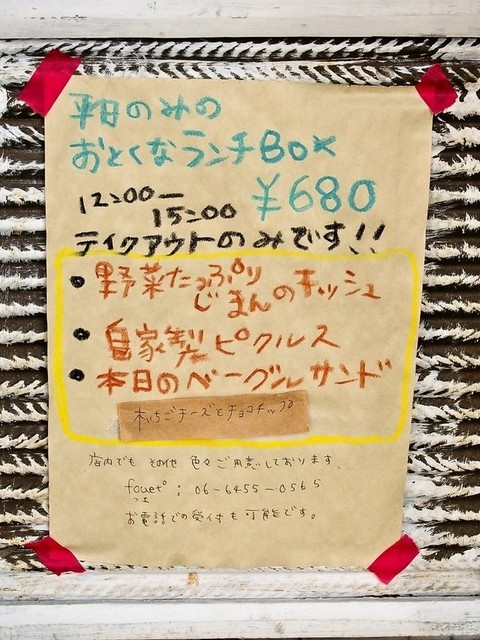 平日のみの
おとくなランチBOX
¥680
12:00ー
15:00
テイクアウトのみです!!
• 野菜たっぷり
じまんのキッシュ
• 自家製ピクルス
• 本日のベーグルサンド
木いちごチーズとチョコチップ
店内でも その他 色々ご用意しております。
fouet : 06-6455-0565
フエ
お電話での受付も可能です。